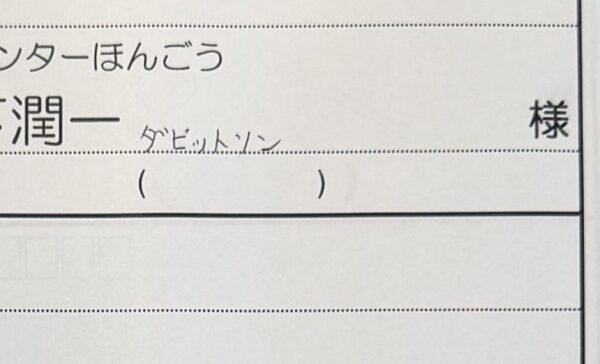 ンターほんごう
潤一 ダビットソン 様
( )